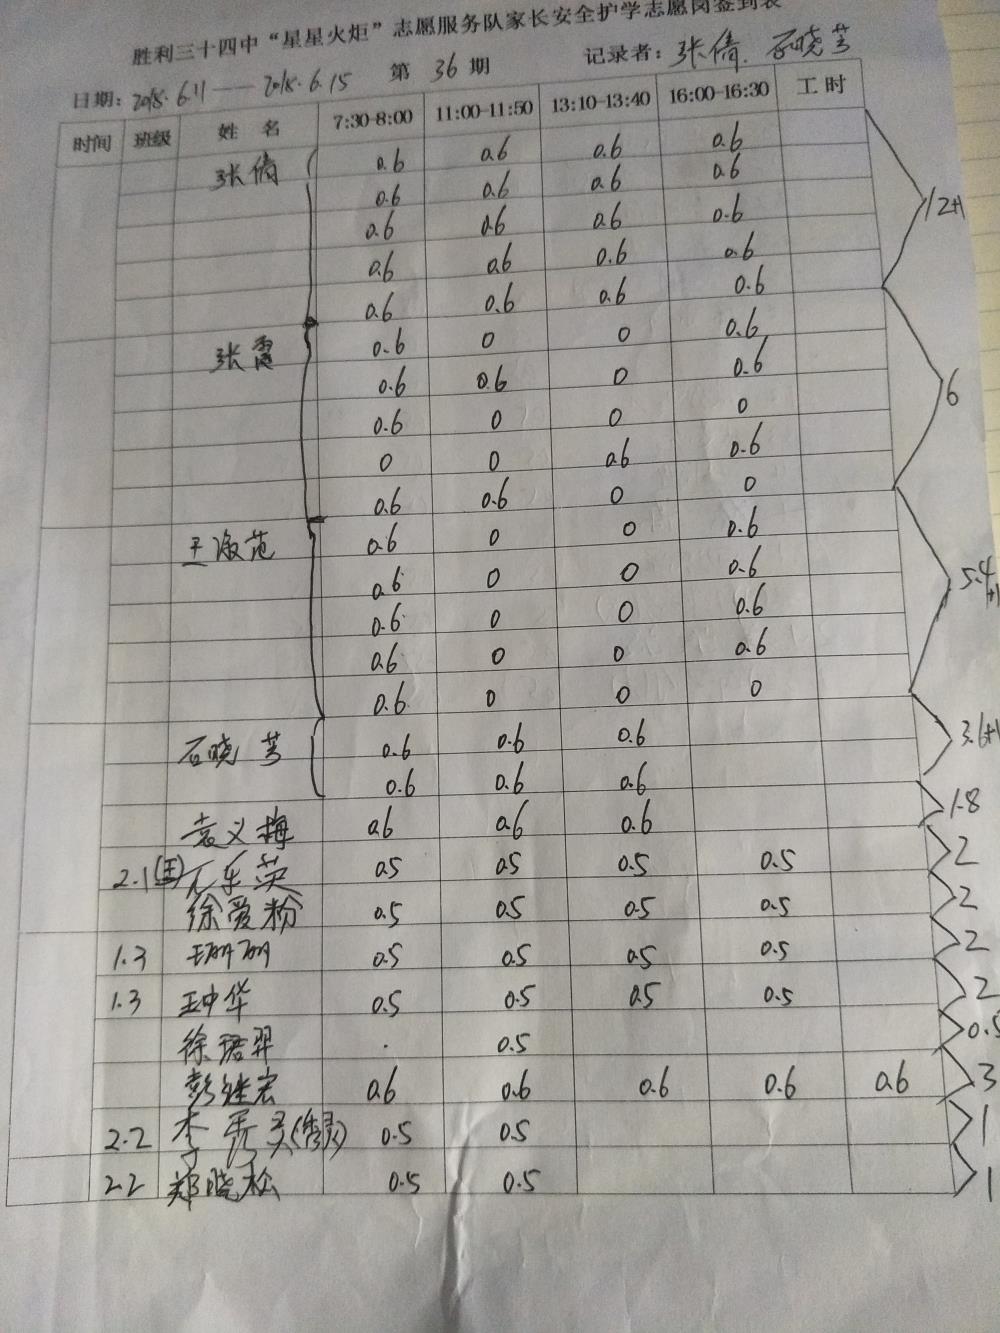 胜利三十四中“星星火炬”志愿服务队家长安全护学志愿岗签到表
日期：2018.6.11——2018.6.15 第36期 记录者：张倩.石晓芳
时间 班级 姓名 7:30-8:00 11:00-11:50 13:10-13:40 16:00-16:30 工时
张倩 0.6 0.6 0.6 0.6
0.6 0.6 0.6 0.6
0.6 0.6 0.6 0.6 12+1
0.6 0.6 0.6 0.6
0.6 0.6 0.6 0.6
张霞 0.6 0 0 0.6
0.6 0.6 0 0.6
0.6 0 0 0 6
0 0 0.6 0.6
0.6 0.6 0 0
王海范 0.6 0 0 0.6
0.6 0 0 0.6
0.6 0 0 0.6 5.4+1
0.6 0 0 0.6
0.6 0 0 0
石晓芳 0.6 0.6 0.6 3.6+1
0.6 0.6 0.6
袁义梅 0.6 0.6 0.6 1.8
2.1 英 0.5 0.5 0.5 0.5 2
徐爱粉 0.5 0.5 0.5 0.5 2
1.3 王丽丽 0.5 0.5 0.5 0.5 2
1.3 王中华 0.5 0.5 0.5 0.5 2
徐珺羿 0.5 0.5
彭继宏 0.6 0.6 0.6 0.6 0.6 3
2.2 李 0.5 0.5 1
2.2 郑晓松 0.5 0.5 1